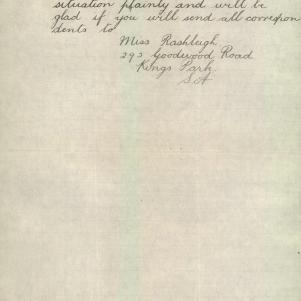 situation plainly and will be
glad if you will send all correspon
dents to
Miss Rashleigh
293 Goodwood Road
Kings Park.
S.A